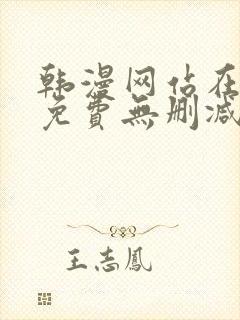 韩漫网站在
免費無删减
王志鳳